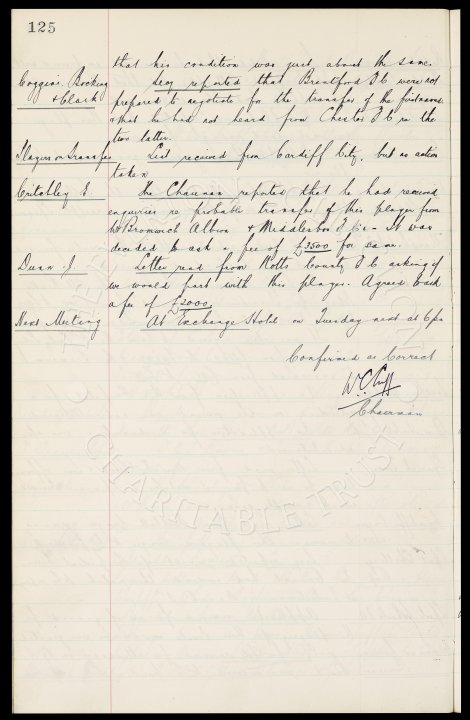 125
that his condition was just about the same.
Coggins Bocking & Clark
Secy reported that Brentford F.C were not
prepared to negotiate for the transfer of the firstnamed
& that he had not heard from Chester F.C re the
two latter.
Players on Transfer
List received from Cardiff City, but no action
taken
Critchley E
The Chairman reported that he had received
enquiries re probable transfer of this player from
W. Bromwich Albion & Middlesbro F.C's - It was
decided to ask a fee of £3500 for same.
Dunn J.
Letter read from Notts County F.C asking if
we would part with this player. Agreed to ask
a fee of £2000.
Next Meeting
At Exchange Hotel on Tuesday next at 6pm
Confirmed as Correct
W.C. Cuff
Chairman
CHARITABLE TRUST